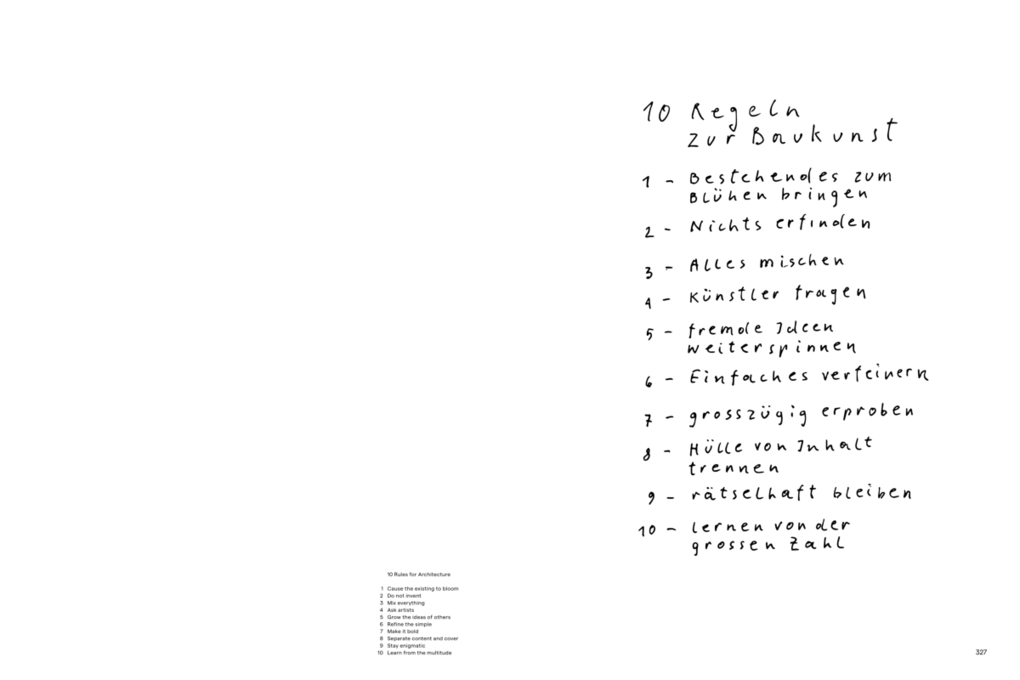 10 Regeln
zur Baukunst
1 - Bestehendes zum
Blühen bringen
2 - Nichts erfinden
3 - Alles mischen
4 - Künstler fragen
5 - fremde Ideen
weiterspinnen
6 - Einfaches verfeinern
7 - grosszügig erproben
8 - Hülle von Inhalt
trennen
9 - rätselhaft bleiben
10 - lernen von der
grossen Zahl
10 Rules for Architecture
1 Cause the existing to bloom
2 Do not invent
3 Mix everything
4 Ask artists
5 Grow the ideas of others
6 Refine the simple
7 Make it bold
8 Separate content and cover
9 Stay enigmatic
10 Learn from the multitude
327